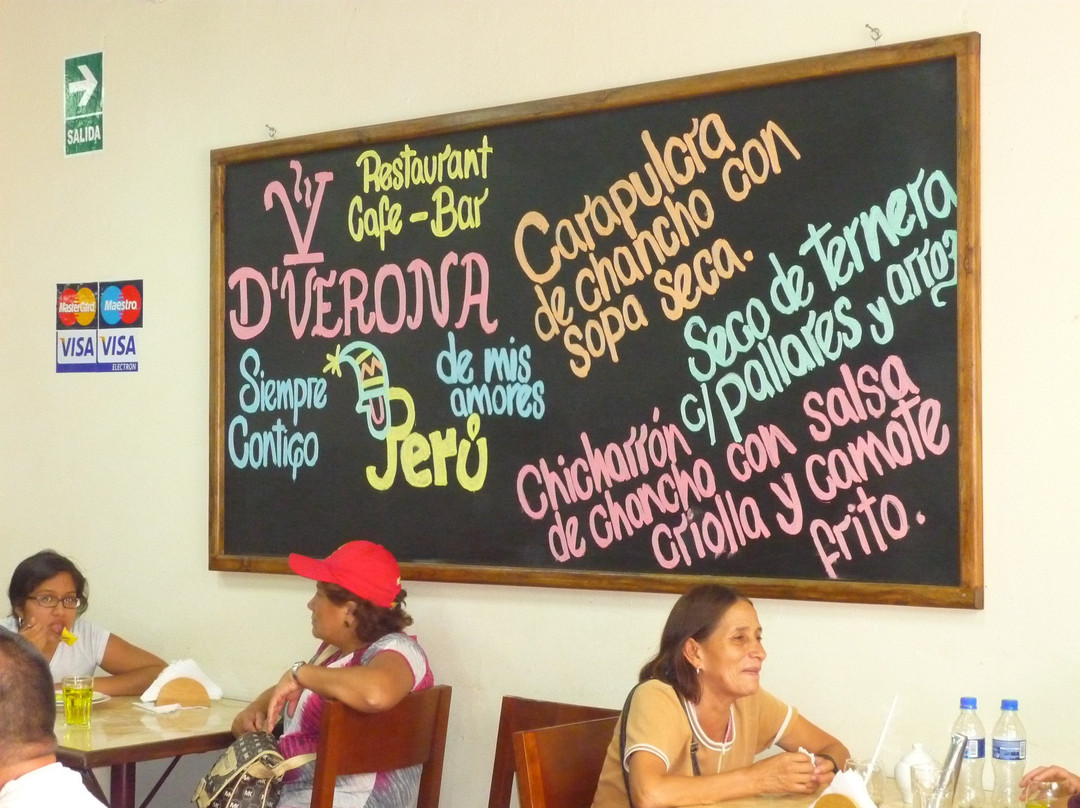 SALIDA
MasterCard
Maestro
VISA VISA
ELECTRON
Restaurant
Cafe - Bar
V
D'VERONA
Siempre
Contigo
Perú
de mis
amores
Carapulcra
de chancho con
sopa seca.
Seco de ternera
c/pallares y arroz
Chicharrón
de chancho con salsa
criolla y camote
frito.